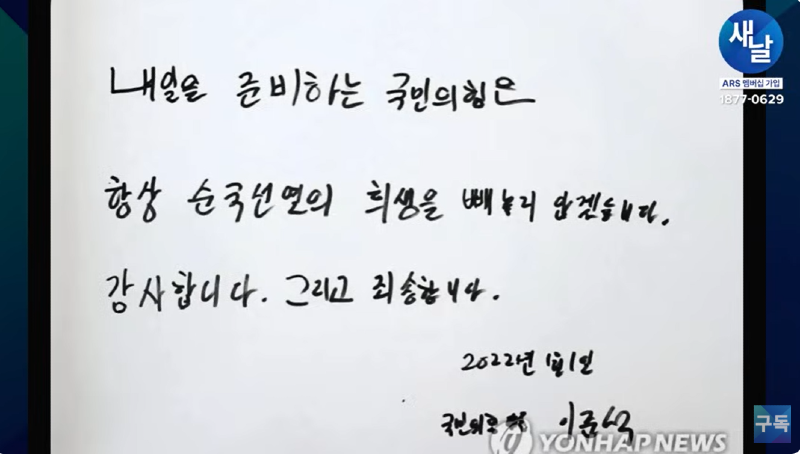 새날
ARS 멤버십 가입
1877-0629
내일을 준비하는 국민의힘은
항상 순국선열의 희생을 빼놓지 않겠습니다.
감사합니다. 그리고 죄송합니다.
2022년 1월 1일
국민의힘 이준석
YONHAP NEWS
구독